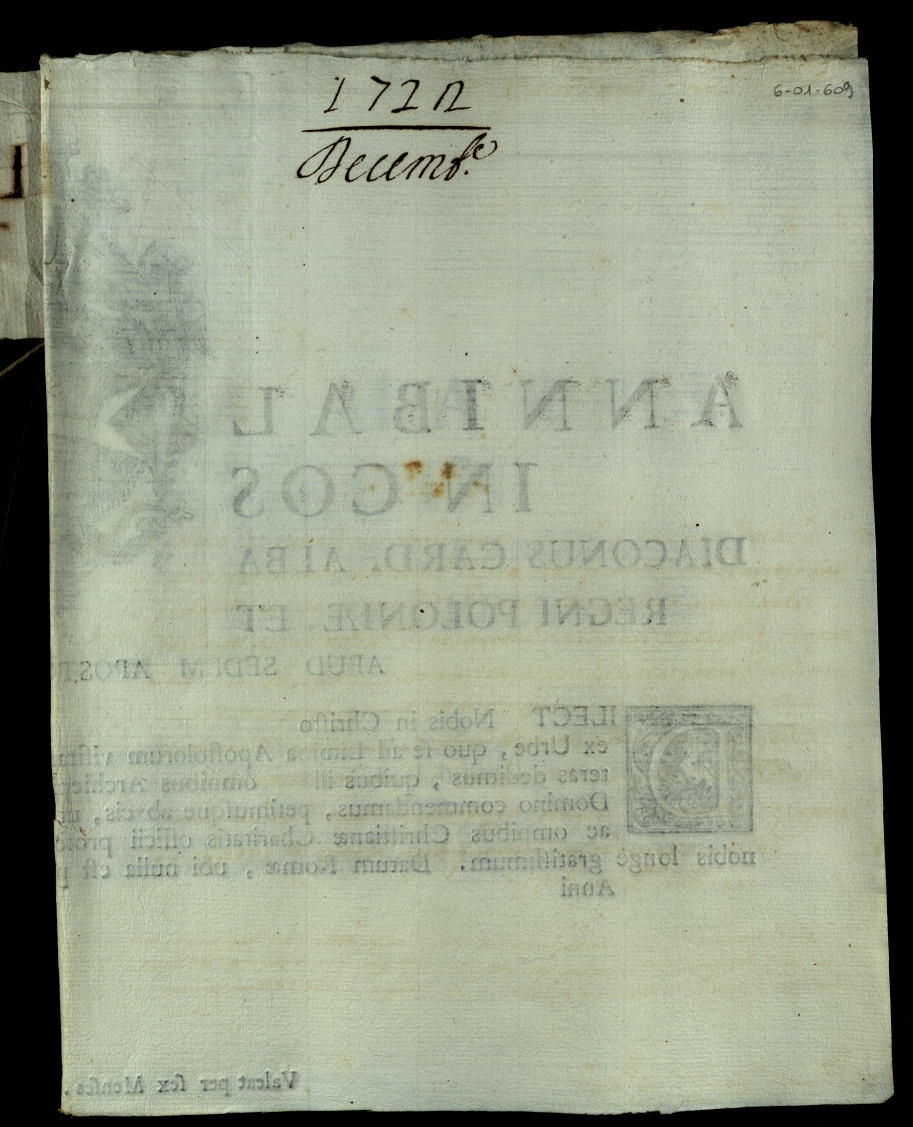 1722
Decemb.re
6-01-609
ANNIBAL
IN COS
DIACONUS CARD. ALBA
REGNI POLONIÆ, ET
APUD SEDEM APOST
DILECT Nobis in Chriſto
ex Urbe, quo ſe ad Limina Apoſtolorum viſita
teras dedimus, quibus ill omnibus Archiep
Domino commendamus, petimuſque ab eis,
ac omnibus Chriſtianæ Charitatis officii
nobis longè gratiſſimum. Datum Romæ, ubi nulla eſt p
Anni
Valeat per ſex Menſes.